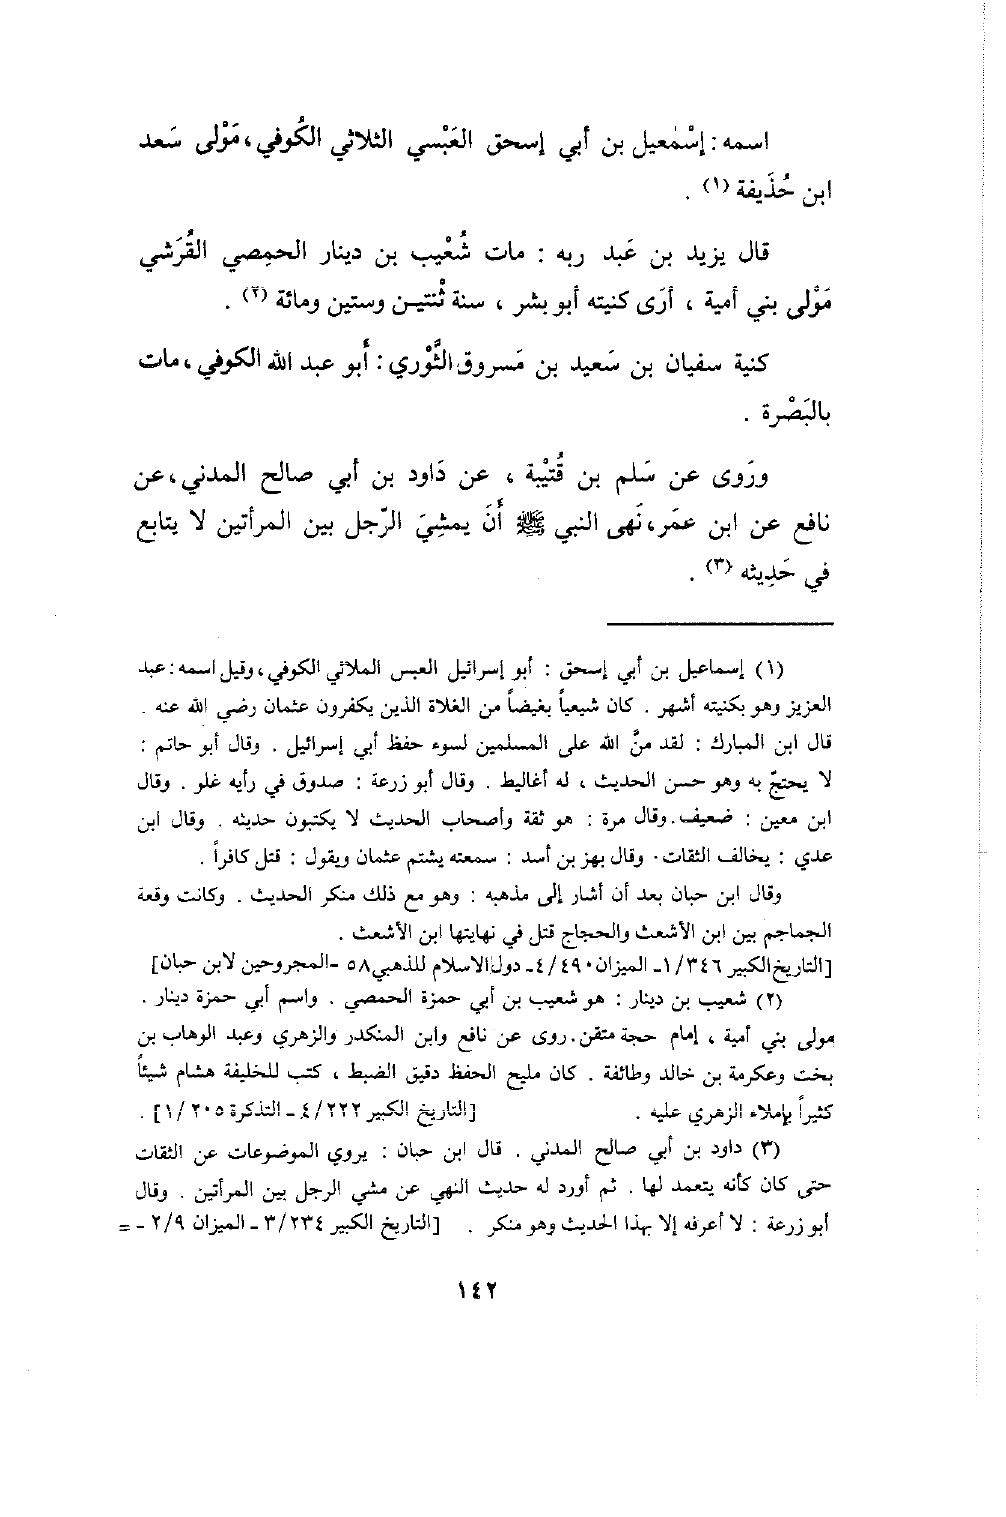 اسمه : إسْمٰعيل بن أبي إسحق العَبْسي الثلاثي الكُوفي ، مَوْلى سَعد
ابن حُذَيفة (١) .
قال يزيد بن عَبد ربه : مات شُعْيب بن دينار الحمِصي القُرَشي
مَوْلى بني أمية ، أرَى كنيته أبو بشر ، سنة ثْنتيـن وستين ومائة (٢) .
كنية سفيان بن سَعيد بن مَسروق الثَّوري : أبو عبد الله الكوفي ، مات
بالبَصْرة .
ورَوى عن سَلم بن قُتيْبة ، عن دَاود بن أبي صالح المدني ، عن
نافع عن ابن عمَر ، نَهى النبي ﷺ أَنَ يمشِيَ الرّجل بين المرأتين لا يتابع
في حَدِيثه (٣) .
(١) إسماعيل بن أبي إسحق : أبو إسرائيل العبس الملائي الكوفي ، وقيل اسمه : عبد
العزيز وهو بكنيته أشهر . كان شيعياً بغيضاً من الغلاة الذين يكفرون عثمان رضي الله عنه .
قال ابن المبارك : لقد منَّ الله على المسلمين لسوء حفظ أبي إسرائيل . وقال أبو حاتم :
لا يحتجّ به وهو حسن الحديث ، له أغاليط . وقال أبو زرعة : صدوق في رأيه غلو . وقال
ابن معين : ضعيف . وقال مرة : هو ثقة وأصحاب الحديث لا يكتبون حديثه . وقال ابن
عدي : يخالف الثقات . وقال بهز بن أسد : سمعته يشتم عثمان ويقول : قتل كافراً .
وقال ابن حبان بعد أن أشار إلى مذهبه : وهو مع ذلك منكر الحديث . وكانت وقعة
الجماجم بين ابن الأشعث والحجاج قتل في نهايتها ابن الأشعث .
[التاريخ الكبير ١/٣٤٦ ـ الميزان ٤/٤٩٠ ـ دول الاسلام للذهبي ٥٨ - المجروحين لابن حبان]
(٢) شعيب بن دينار : هو شعيب بن أبي حمزة الحمصي . واسم أبي حمزة دينار .
مولى بني أمية ، إمام حجة متقن . روى عن نافع وابن المنكدر والزهري وعبد الوهاب بن
بخت وعكرمة بن خالد وطائفة . كان مليح الحفظ دقيق الضبط ، كتب للخليفة هشام شيئاً
كثيراً بإملاء الزهري عليه . [التاريخ الكبير ٤/٢٢٢ ـ التذكرة ١/٢٠٥] .
(٣) داود بن أبي صالح المدني . قال ابن حبان : يروي الموضوعات عن الثقات
حتى كان كأنه يتعمد لها . ثم أورد له حديث النهي عن مشي الرجل بين المرأتين . وقال
أبو زرعة : لا أعرفه إلا بهذا الحديث وهو منكر . [التاريخ الكبير ٣/٢٣٤ ـ الميزان ٢/٩ - =
١٤٢